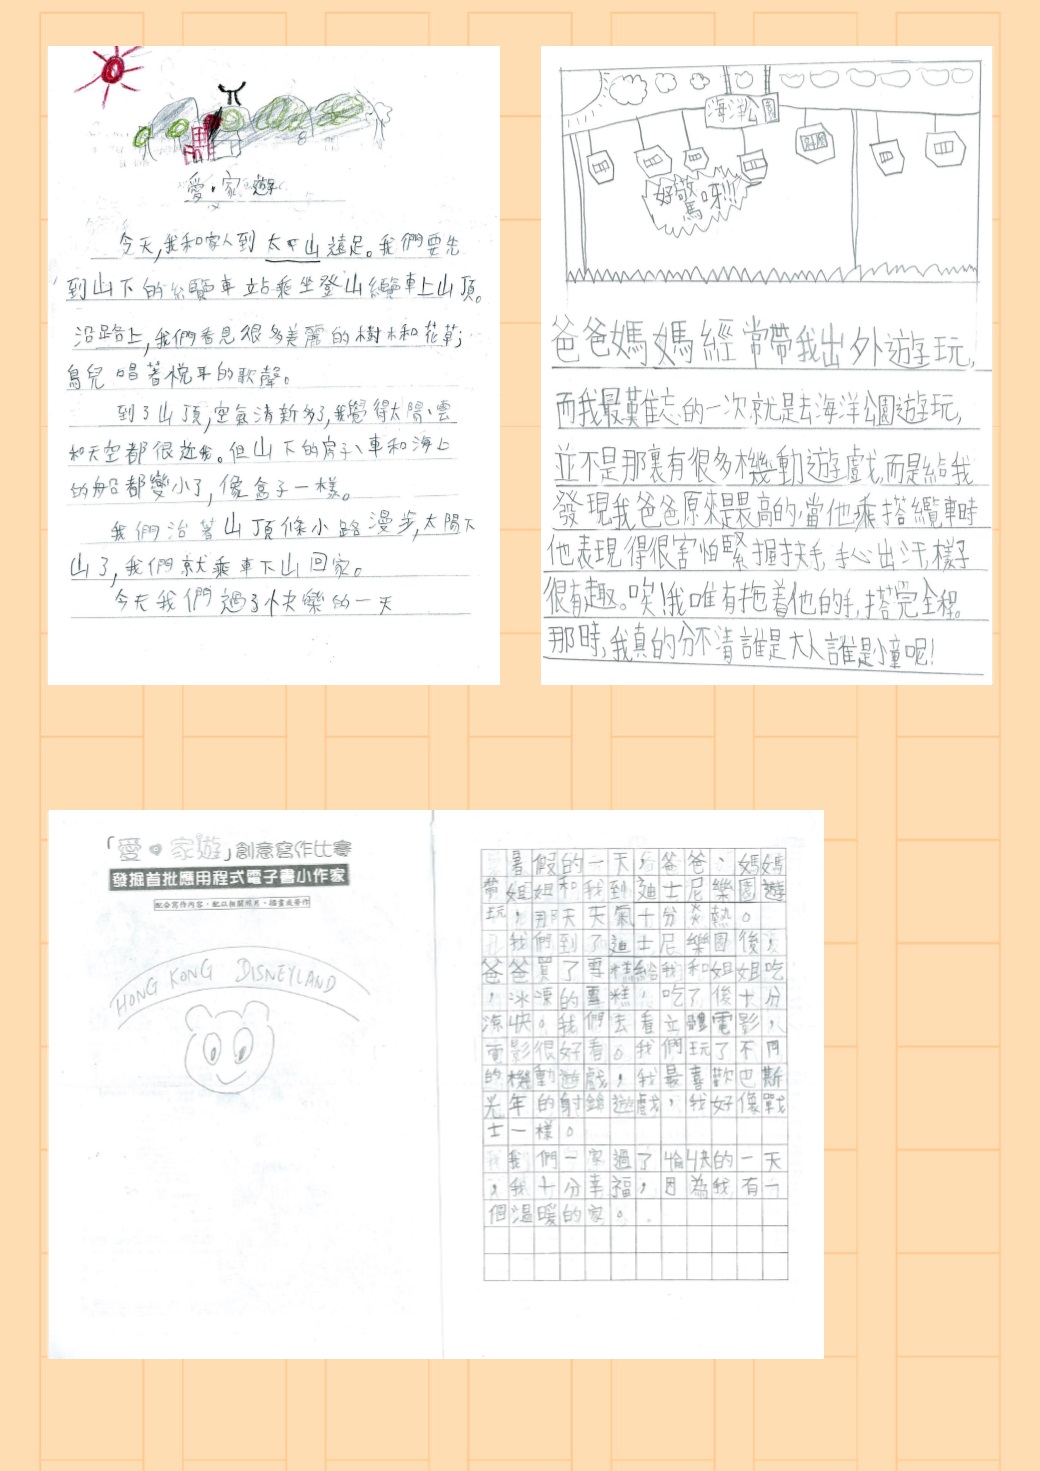 愛·家遊
今天,我和家人到太平山遠足。我們要先
到山下的纜車站乘坐登山纜車上山頂。
沿路上,我們看見很多美麗的樹木和花草;
鳥兒唱著悅耳的歌聲。
到了山頂,空氣清新多了,我覺得太陽、雲
和天空都很近我。但山下的房子、車和海上
的船都變小了,像盒子一樣。
我們沿著山頂條小路漫步,太陽下
山了,我們就乘車下山回家。
今天我們過了快樂的一天
海洋公園
好驚呀!!
爸爸媽媽經常帶我出外遊玩,
而我最難忘的一次就是去海洋公園遊玩,
並不是那裏有很多機動遊戲,而是給我
發現我爸爸原來是畏高的,當他乘搭纜車時
他表現得很害怕緊握扶手,手心出汗,樣子
很有趣。唉!我唯有拖着他的手,搭完全程。
那時,我真的分不清誰是大人誰是小童呢!
「愛•家遊」創意寫作比賽
發掘首批應用程式電子書小作家
配合寫作內容,配以相關照片、插畫或勞作
HONG KONG DISNEYLAND
暑假的一天,爸爸、媽媽
帶姐姐和我到迪士尼樂園遊
玩,那天天氣十分炎熱。
我們到了迪士尼樂園後,
爸爸買了雪糕給我和姐姐吃
,冰凍的雪糕,吃了後十分
涼快。我們去看立體電影,
電影很好看。我們玩了不同
的機動遊戲,我最喜歡巴斯
光年的射鎗遊戲,我好像戰
士一樣。
我們一家過了愉快的一天
,我十分幸福,因為我有一
個溫暖的家。